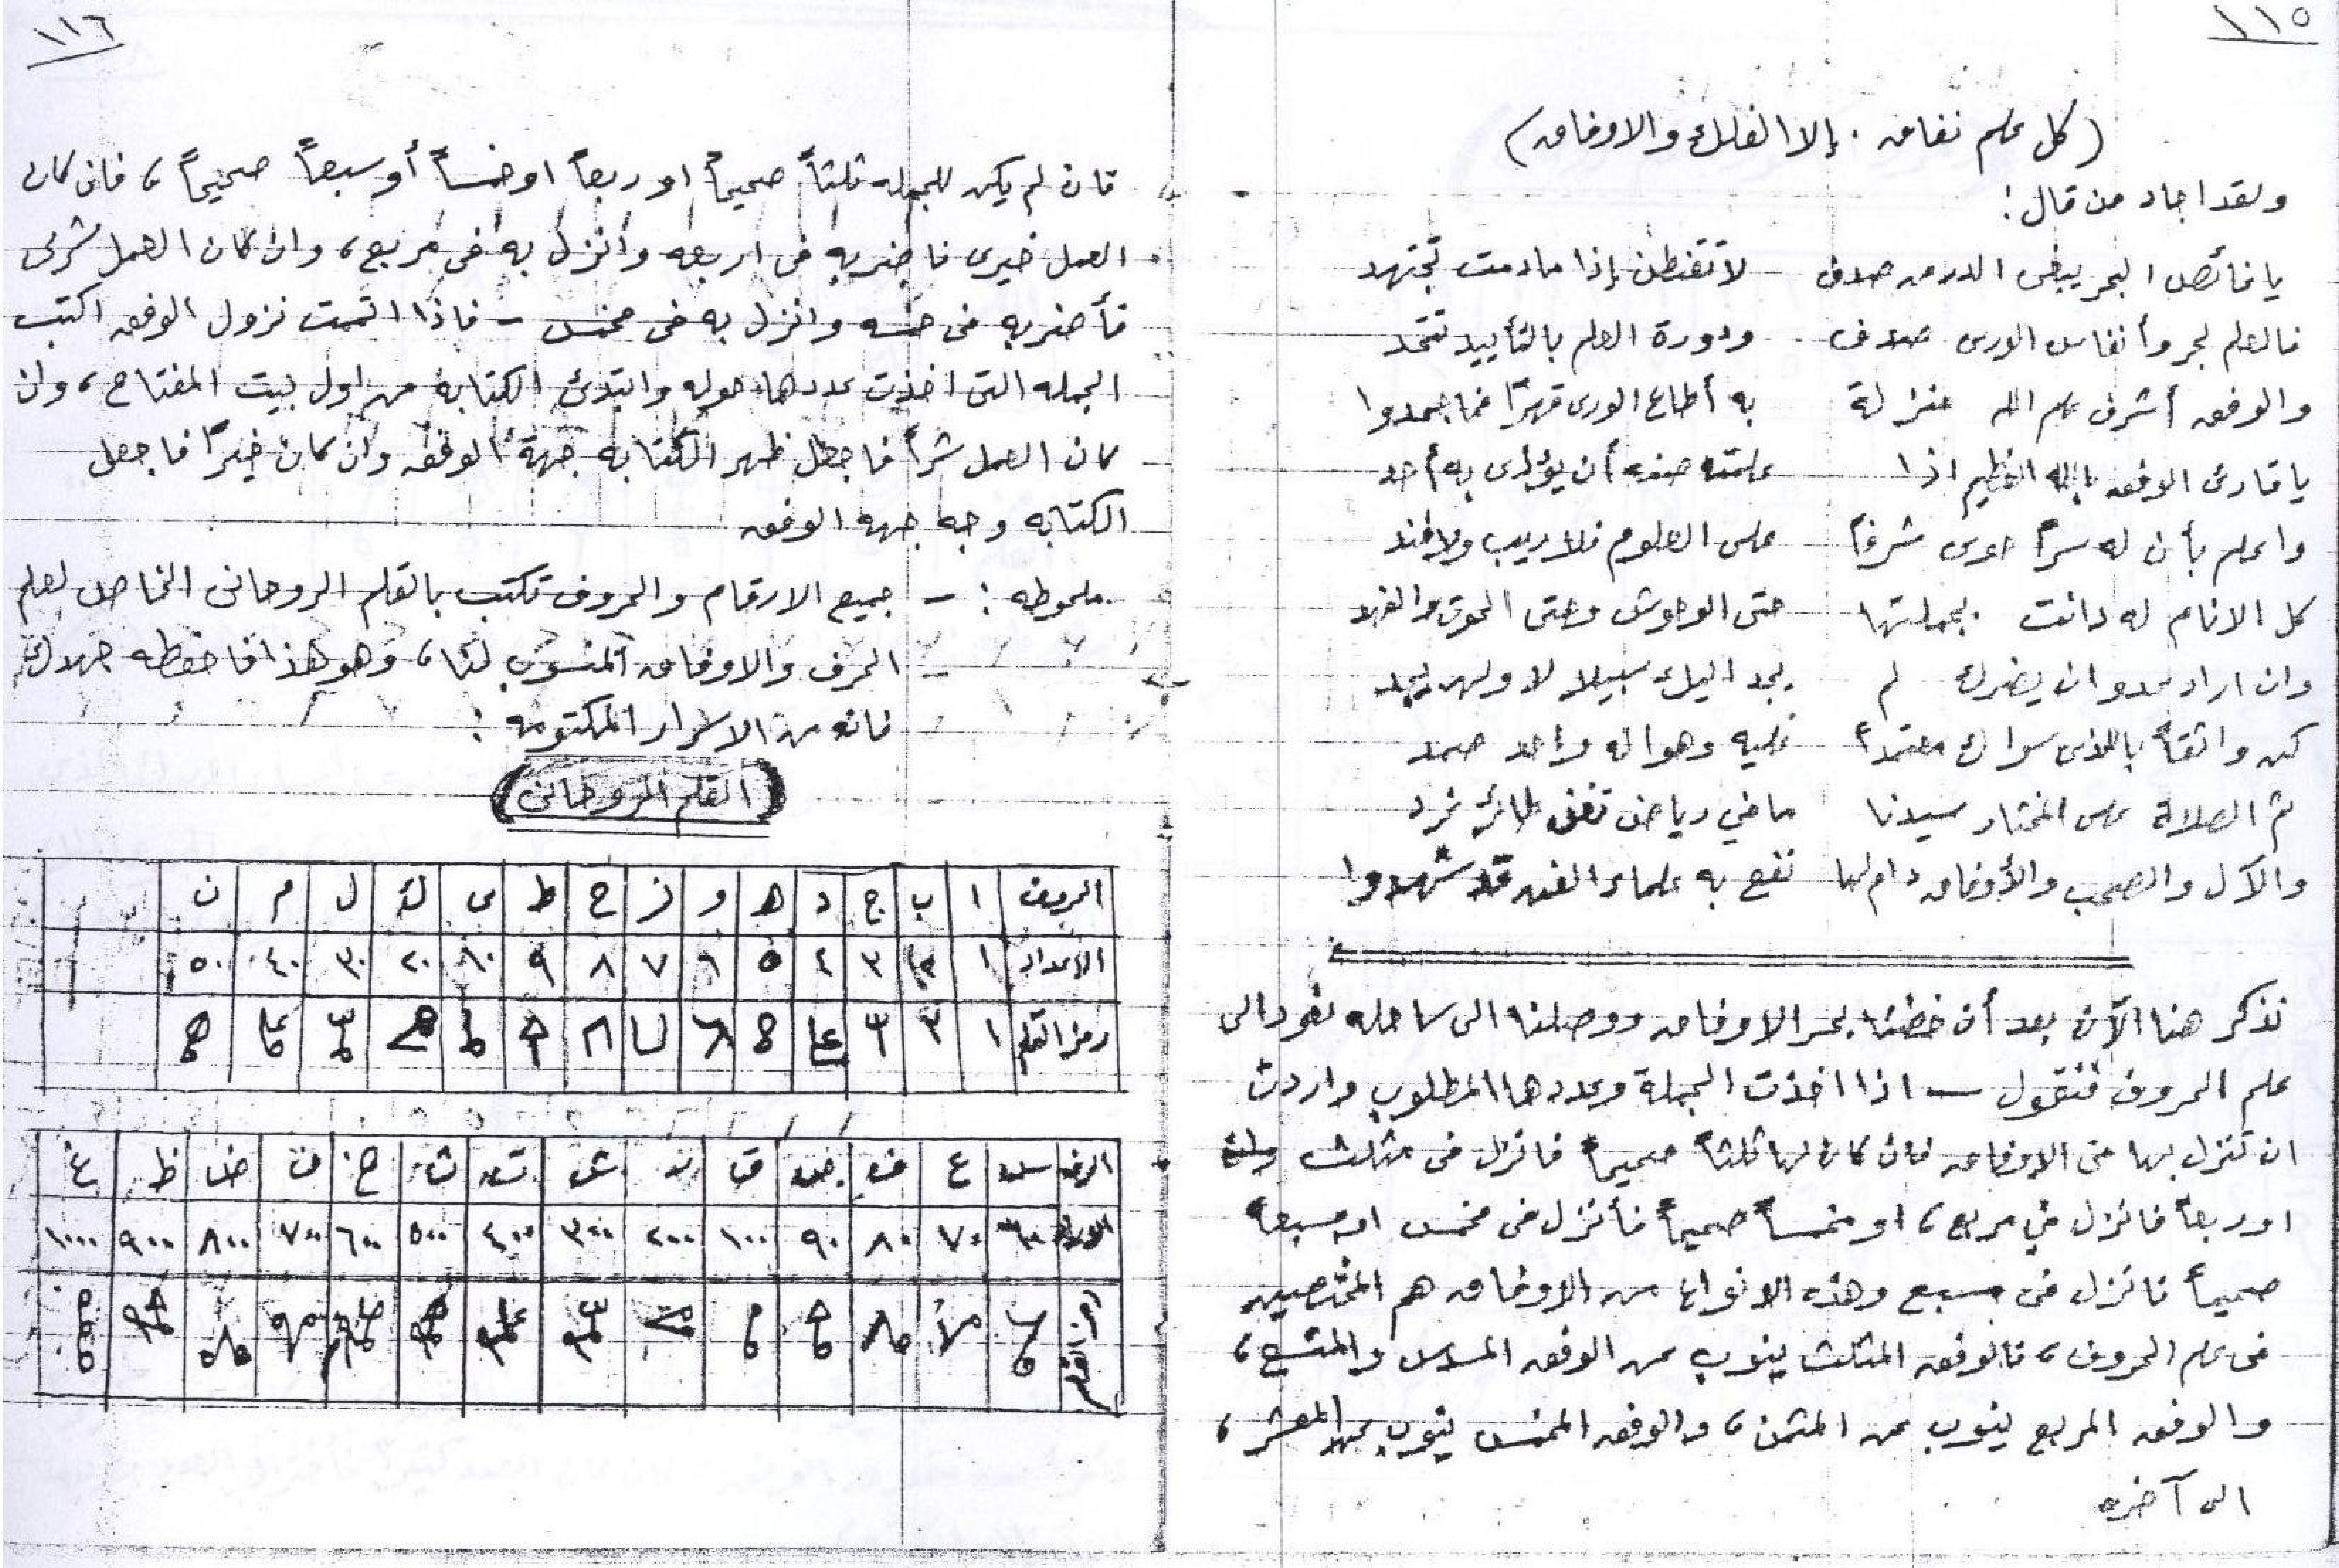 ١١٥
(كل علم نفاق . إلا الفلك والاوفاق)
ولقد اجاد من قال :
يا غائص البحر يبغى الدر من صدف لا تقنطن إذا ما دمت تجتهد
فالعلم بحر وأنفاس الورى صدف ودورة العلم بالتأييد تتحد
والوفق أشرف علم الله منزلة به أطاع الورى قهرًا فما جحدوا
يا قارئ الوفق بالله العظيم اذا علمته صنه أن يؤذى به أحد
واعلم بأن له سراً حوى شرفاً على العلوم فلا ريب ولا فند
كل الانام له دانت بجملتها حتى الوحوش وحتى الحوت والفهد
وان اراد عدو ان يضرك لم يجد اليك سبيلا لا ولن يجد
كن واثقاً بالذى سواك معتمداً عليه وهو اله واحد صمد
ثم الصلاة على المختار سيدنا ما في رياض تغنى طائر غرد
والآل والصحب والأوفاق دام لها نفع به علماء الفن قد شهدوا
نذكر هنا الآن بعد أن خضنا بحر الاوفاق ووصلنا الى ساحله نعود الى
علم الحروف فنقول — اذا اخذت الجملة وعددها المطلوب واردت
ان تنزل بها فى الاوفاق فان كان لها ثلثاً صحيحاً فانزل فى مثلث
او ربعاً فانزل في مربع ، او خمساً صحيحاً فأنزل فى مخمس او سبعاً
صحيحاً فانزل فى مسبع وهذه الانواع من الاوفاق هم المختصين
فى علم الحروف ، فالوفق المثلث ينوب عن الوفق المسدس والمتسع ،
والوفق المربع ينوب عن المثمن ، والوفق المخمس ينوب عن المعشر ،
الى آخره
١١٦
فان لم يكن للجمله ثلثاً صحيحاً او ربعاً او خمساً أو سبعاً صحيحاً ، فان كان
العمل خيرى فاضربه فى اربعه وانزل به فى مربع ، وان كان العمل شرى
فأضربه فى خمسه وانزل به فى مخمس — فاذا اتممت نزول الوفق اكتب
الجمله التى اخذت عددها حوله وابتدئ الكتابة من اول بيت المفتاح ، وان
كان العمل شراً فاجعل ظهر الكتابه جهة الوفق وان كان خيراً فاجعل
الكتابه وجه جهه الوفق
ملحوظه : - جميع الارقام والحروف تكتب بالقلم الروحانى الخاص لعلم
الحرف والاوفاق المنسوب لنا ، وهو هذا فاحفظه
فانه من الاسرار المكتومه :
(القلم الروحانى)
الحروف ا ب ج د ه و ز ح ط ى ك ل م ن
الاعداد ١ ٢ ٣ ٤ ٥ ٦ ٧ ٨ ٩ ١٠ ٢٠ ٣٠ ٤٠ ٥٠
رمز القلم
الحرف س ع ف ص ق ر ش ت ث خ ذ ض ظ غ
الاعداد ٦٠ ٧٠ ٨٠ ٩٠ ١٠٠ ٢٠٠ ٣٠٠ ٤٠٠ ٥٠٠ ٦٠٠ ٧٠٠ ٨٠٠ ٩٠٠ ١٠٠٠
رمز القلم